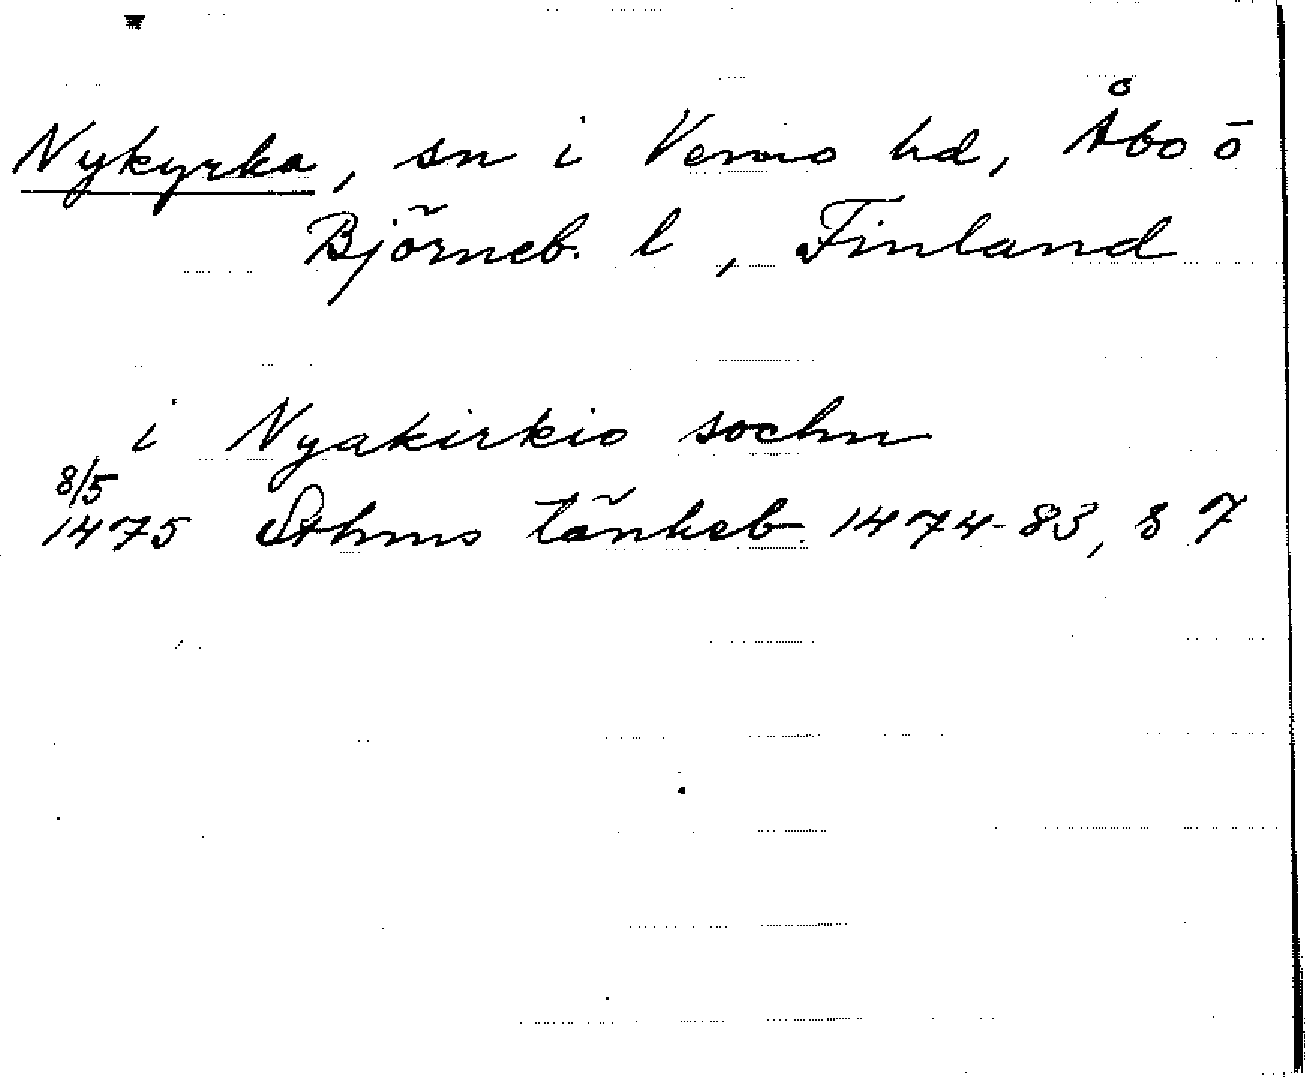 Nykyrka, sn i Vemo hd, Åbo ö
Björneb. l, Finland
i Nyakirkio sochn
8/5
1475 Sthms tänkeb. 1474-83, s 7